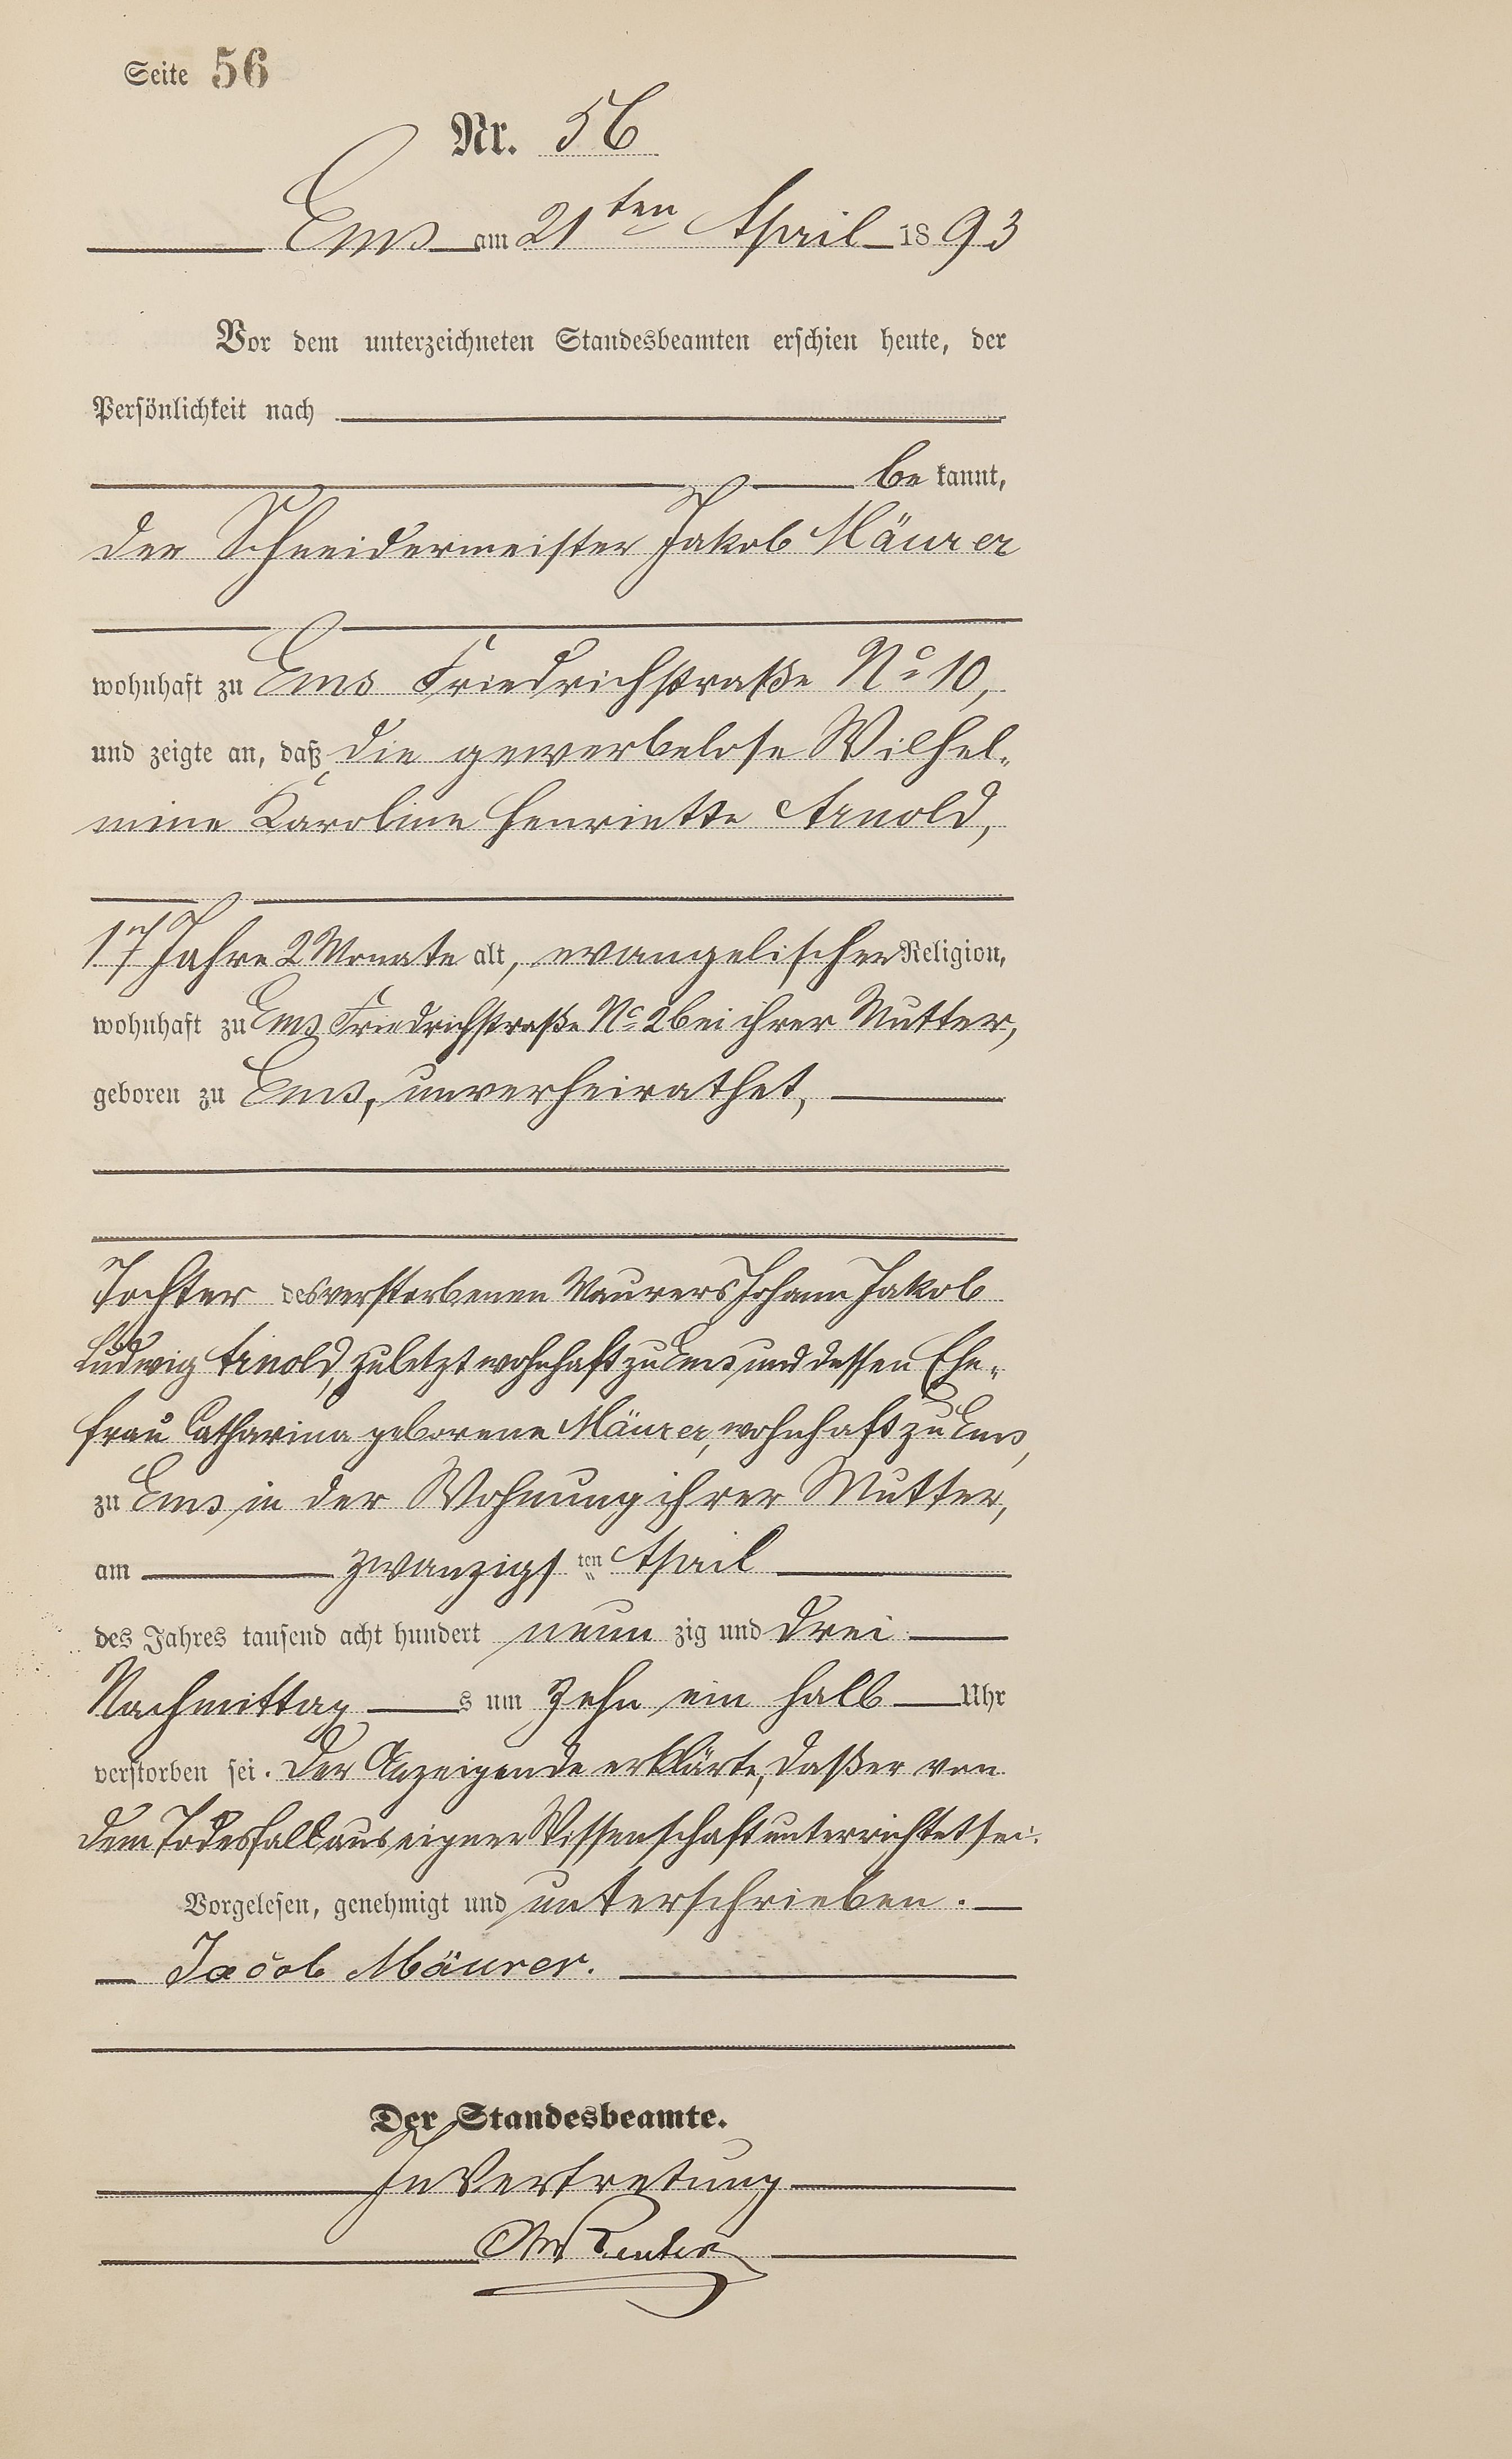 Seite 56
Nr. 56
Ems am 21ten April 1893
Vor dem unterzeichneten Standesbeamten erschien heute, der
Persönlichkeit nach
be kannt,
der Schneidermeister Jakob Mäurer
wohnhaft zu Ems Friedrichstraße No 10,
und zeigte an, daß die gewerbelose Wilhel-
mine Karoline Henriette Arnold,
17 Jahre 2 Monate alt, evangelischer Religion,
wohnhaft zu Ems Friedrichstraße No 2 bei ihrer Mutter,
geboren zu Ems, unverheirathet,
Tochter des verstorbenen Maurers Johann Jakob
Ludwig Arnold, zuletzt wohnhaft zu Ems und dessen Ehe-
frau Catharina geborene Mäurer, wohnhaft zu Ems,
zu Ems in der Wohnung ihrer Mutter,
am zwanzigsten April
des Jahres tausend acht hundert neun zig und drei
Nachmittag s um zehn ein halb Uhr
verstorben sei. Der Anzeigende erklärte, daß er von
dem Todesfall aus eigner Wissenschaft unterrichtet sei.
Vorgelesen, genehmigt und unterschrieben.
Jacob Mäurer.
Der Standesbeamte.
In Vertretung